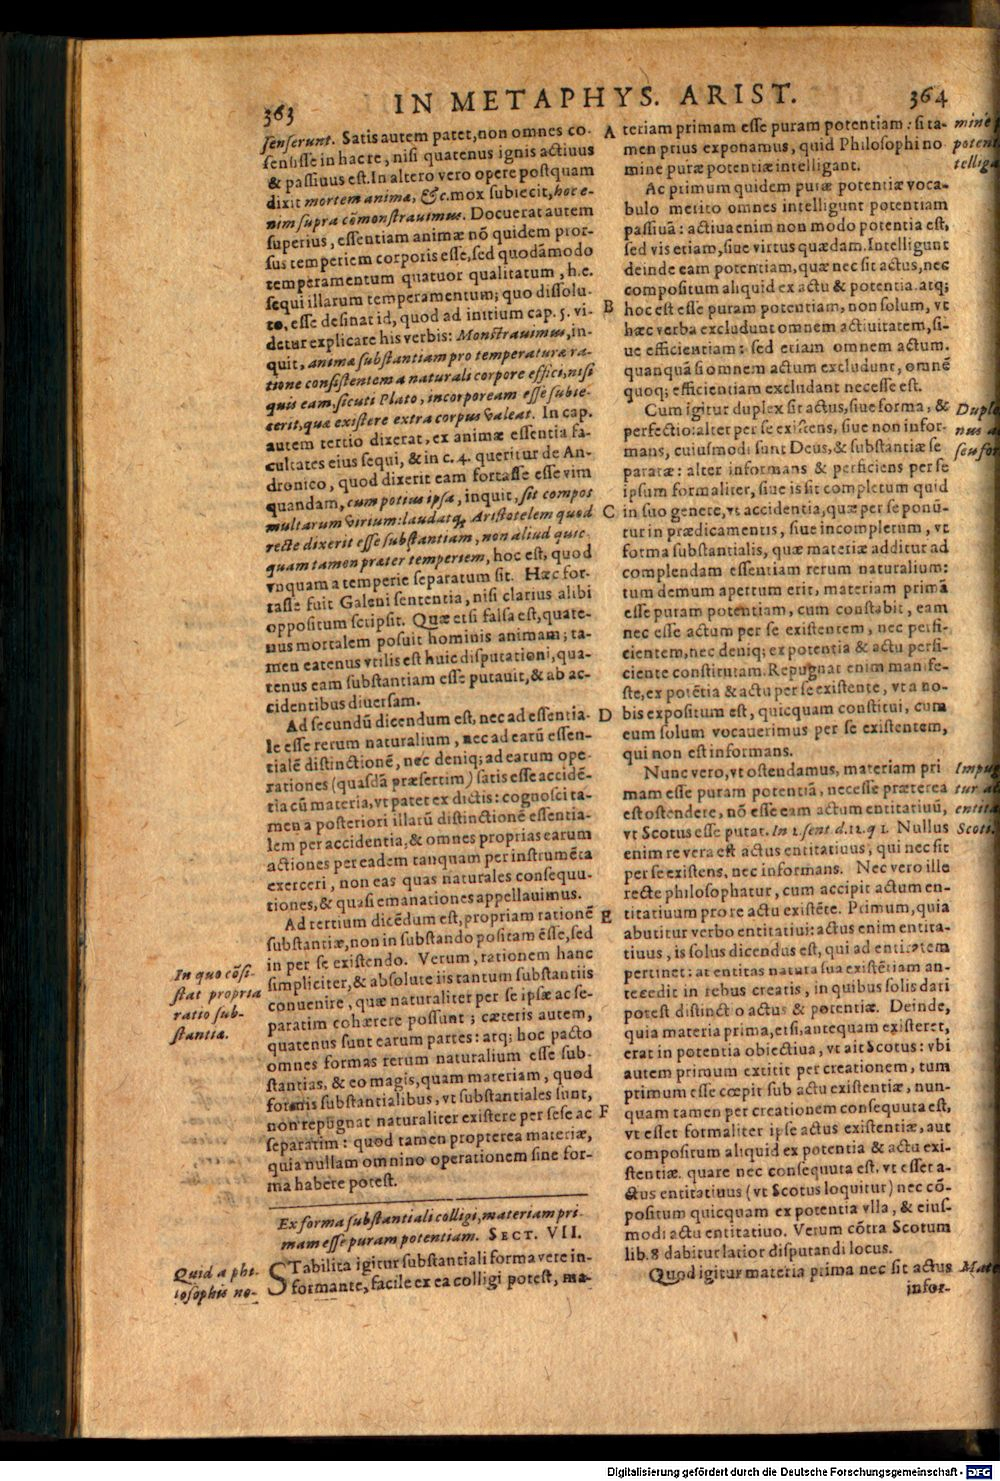 363
IN METAPHYS. ARIST.
364
senserunt. Satis autem patet, non omnes co-
sensisse in hac re, nisi quatenus ignis actiuus
& passiuus est. In altero vero opere postquam
dixit mortem animæ, &c. mox subiecit, hoc e-
nim supra cõmonstrauimus. Docuerat autem
superius, essentiam animæ nõ quidem pror-
sus temperiem corporis esse, sed quodãmodo
temperamentum quatuor qualitatum, h.e.
sequi illarum temperamentum; quo dissolu-
to, esse desinat id, quod ad initium cap. 5. vi-
detur explicare his verbis: Monstrauimus, in-
quit, animæ substantiam pro temperaturæ ra-
tione consistentem a naturali corpore effici, nisi
quis eam, sicuti Plato, incorpoream esse subie-
cerit, quæ existere extra corpus valeat. In cap.
autem tertio dixerat, ex animæ essentia fa-
cultates eius sequi, & in c. 4. queritur de An-
dronico, quod dixerit eam fortasse esse vim
quandam, cum potius ipsa, inquit, sit compos
multarum virium: laudatq; Aristotelem quod
recte dixerit esse substantiam, non aliud quic-
quam tamen præter temperiem, hoc est, quod
vnquam a temperie separatum sit. Hæc for-
tasse fuit Galeni sententia, nisi clarius alibi
oppositum scripsit. Quæ etsi falsa est, quate-
nus mortalem posuit hominis animam; ta-
men eatenus vtilis est huic disputationi, qua-
tenus eam substantiam esse putauit, & ab ac-
cidentibus diuersam.
Ad secundũ dicendum est, nec ad essentia-
le esse rerum naturalium, nec ad earũ essen-
tialẽ distinctionẽ, nec deniq; ad earum ope-
rationes (quasdã præsertim) satis esse accidẽ-
tia cũ materia, vt patet ex dictis: cognosci ta-
men a posteriori illarũ distinctionẽ essentia-
lem per accidentia, & omnes proprias earum
actiones per eadem tanquam per instrumẽta
exerceri, non eas quas naturales consequu-
tiones, & quasi emanationes appellauimus.
Ad tertium dicẽdum est, propriam rationẽ
substantiæ, non in substando positam esse, sed
in per se existendo. Verum, rationem hanc
simpliciter, & absolute iis tantum substantiis
conuenire, quæ naturaliter per se ipsæ ac se-
paratim cohærere possunt; cæteris autem,
quatenus sunt earum partes: atq; hoc pacto
omnes formas rerum naturalium esse sub-
stantias, & eo magis, quam materiam, quod
formis substantialibus, vt substantiales sunt,
non repugnat naturaliter existere per sese ac
separatim: quod tamen propterea materiæ,
quia nullam omnino operationem sine for-
ma habere potest.
In quo cõsi-
stat propria
ratio sub-
stantiæ.
Ex forma substantiali colligi, materiam pri-
mam esse puram potentiam. SECT. VII.
STabilita igitur substantiali forma vere in-
formante, facile ex ea colligi potest, ma-
Quid a phi-
losophis no-
A
B
C
D
E
F
teriam primam esse puram potentiam: si ta-
men prius exponamus, quid Philosophi no
mine puræ potentiæ intelligant.
Ac primum quidem puræ potentiæ voca-
bulo merito omnes intelligunt potentiam
passiuã: actiua enim non modo potentia est,
sed vis etiam, siue virtus quædam. Intelligunt
deinde eam potentiam, quæ nec sit actus, nec
compositum aliquid ex actu & potentia. atq;
hoc est esse puram potentiam, non solum, vt
hæc verba excludunt omnem actiuitatem, si-
ue efficientiam: sed etiam omnem actum.
quanquã si omnem actum excludunt, omnẽ
quoq; efficientiam excludant necesse est.
Cum igitur duplex sit actus, siue forma, &
perfectio: alter per se existens, siue non infor-
mans, cuiusmodi sunt Deus, & substantiæ se
paratæ: alter informans & perficiens per se
ipsum formaliter, siue is sit completum quid
in suo genere, vt accidentia, quæ per se ponũ-
tur in prædicamentis, siue incompletum, vt
forma substantialis, quæ materiæ additur ad
complendam essentiam rerum naturalium:
tum demum apertum erit, materiam primã
esse puram potentiam, cum constabit, eam
nec esse actum per se existentem, nec perfi-
cientem, nec deniq; ex potentia & actu perfi-
ciente constitutam. Repugnat enim manife-
ste, ex potẽtia & actu per se existente, vt a no-
bis expositum est, quicquam constitui, cum
eum solum vocauerimus per se existentem,
qui non est informans.
Nunc vero, vt ostendamus, materiam pri
mam esse puram potentiã, necesse præterea
est ostendere, nõ esse eam actum entitatiuũ,
vt Scotus esse putat. In 2. sent d. 12. q 1. Nullus
enim re vera est actus entitatiuus, qui nec sit
per se existens, nec informans. Nec vero ille
recte philosophatur, cum accipit actum en-
titatiuum pro re actu existẽte. Primum, quia
abutitur verbo entitatiui: actus enim entita-
tiuus, is solus dicendus est, qui ad entitatem
pertinet: at entitas natura sua existẽtiam an-
tecedit in rebus creatis, in quibus solis dari
potest distinctio actus & potentiæ. Deinde,
quia materia prima, etsi, antequam existeret,
erat in potentia obiectiua, vt ait Scotus: vbi
autem primum extitit per creationem, tum
primum esse cœpit sub actu existentiæ, nun-
quam tamen per creationem consequuta est,
vt esset formaliter ipse actus existentiæ, aut
compositum aliquid ex potentia & actu exi-
stentiæ. quare nec consequuta est, vt esset a-
ctus entitatiuus (vt Scotus loquitur) nec cõ-
positum quicquam ex potentia vlla, & eius-
modi actu entitatiuo. Verum cõtra Scotum
lib. 8 dabitur latior disputandi locus.
Quod igitur materia prima nec sit actus
infor-
mine p
potent
telliga
Duple
nus a
seu for
Impug
tur a
entita
Scoti.
Mate
Digitalisierung gefördert durch die Deutsche Forschungsgemeinschaft - DFG